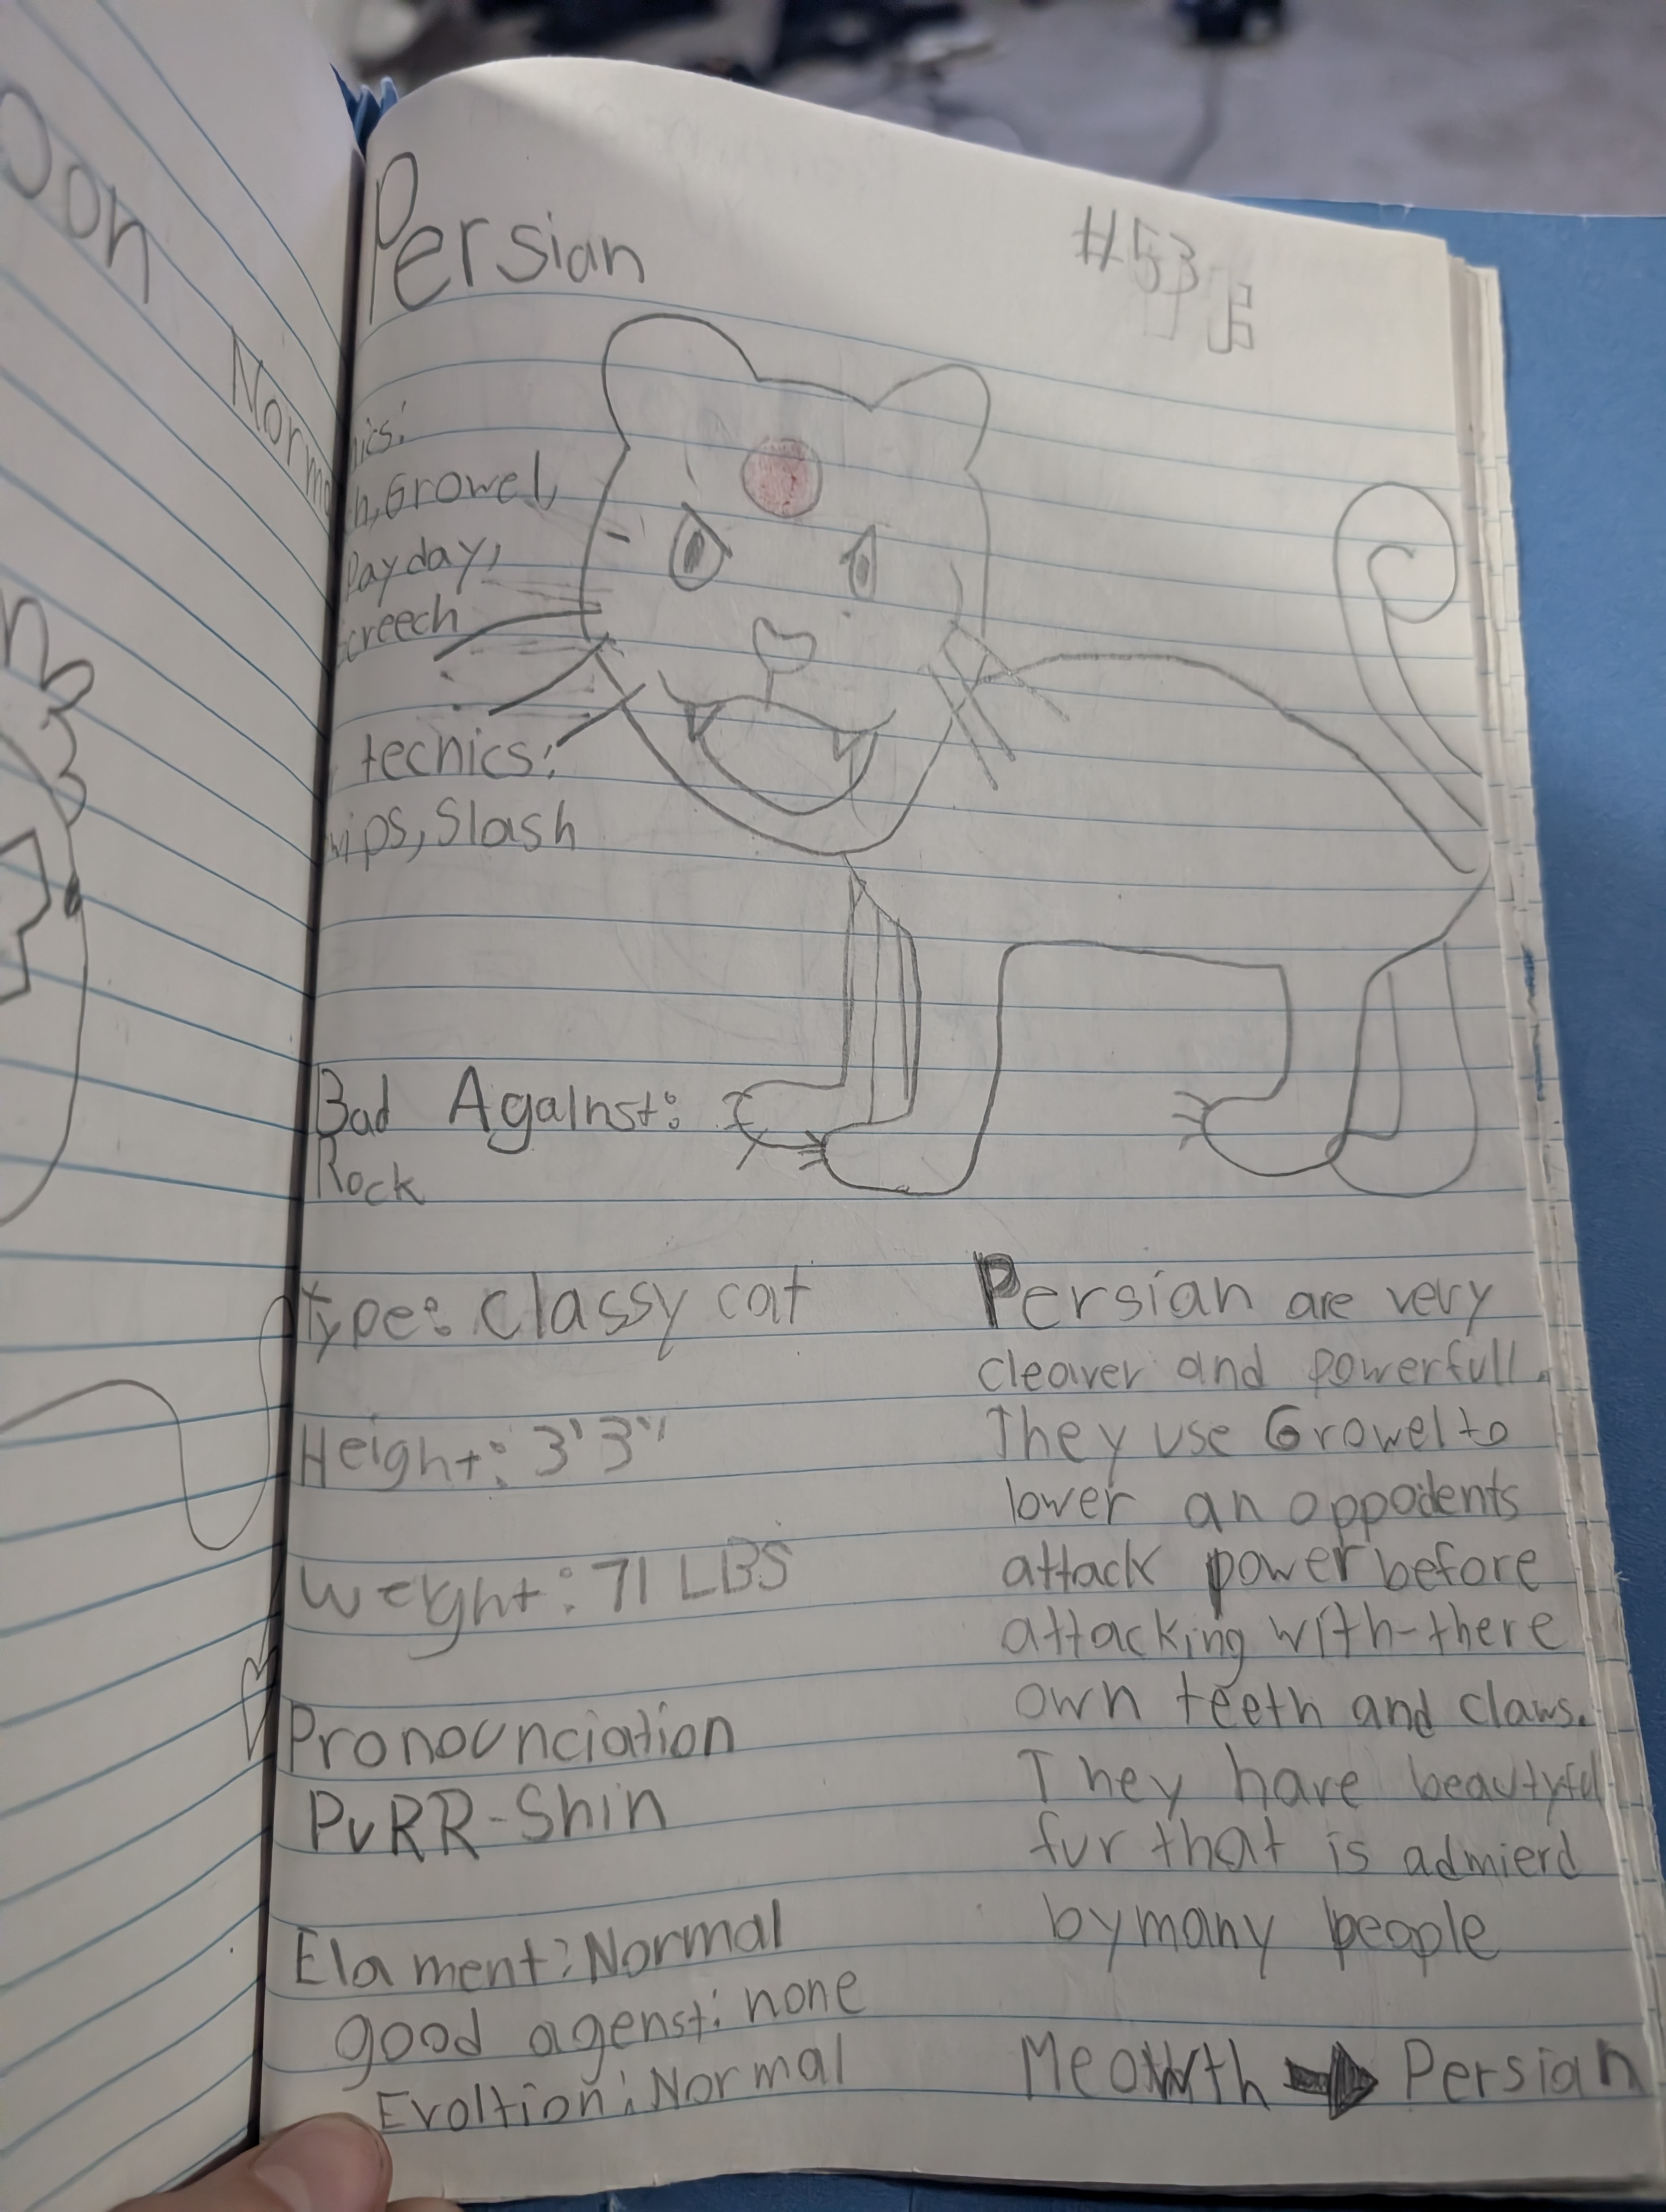 oon
Norma
Persian
#53
nics:
h, Growel
Payday,
creech
tecnics:
wips, Slash
Bad Against:
Rock
Type: classy cat
Height: 3'3"
Weight: 71 LBS
Pronounciation
PuRR-Shin
Elament: Normal
good agenst: none
Evoltion: Normal
Persian are very
cleaver and powerfull.
They use Growel to
lower an oppodents
attack power before
attacking with there
own teeth and claws.
They have beautyful
fur that is admierd
by many people
Meowth → Persian